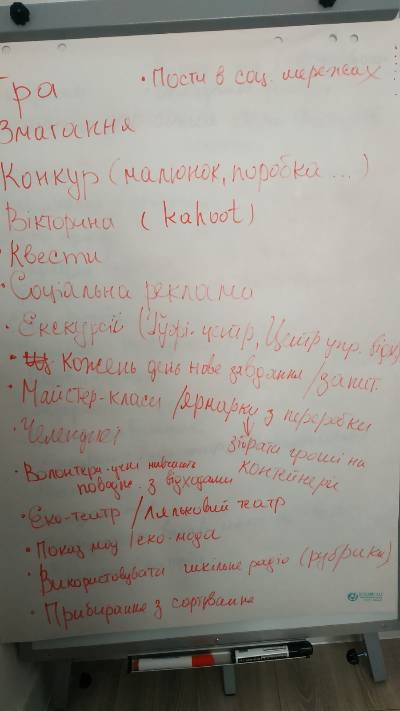 Гра
• Пости в соц. мережах
Змагання
Конкур (малюнок, поробка ...)
Вікторина (kahoot)
• Квести
• Соціальна реклама
• Екскурсії (Буфі-центр, Центр упр. відх)
• кожень день нове завдання / запит.
• Майстер-класи / ярнарку з переробки
↓
збірати гроші на
контейнери
• Челенджі
• Волонтери-учні навчають
поводж. з відходами
• Еко-театр / Ляльковий театр
• Показ мод / еко-мода
• Використовувати шкільне радіо (рубрики)
• Прибирання з сортування